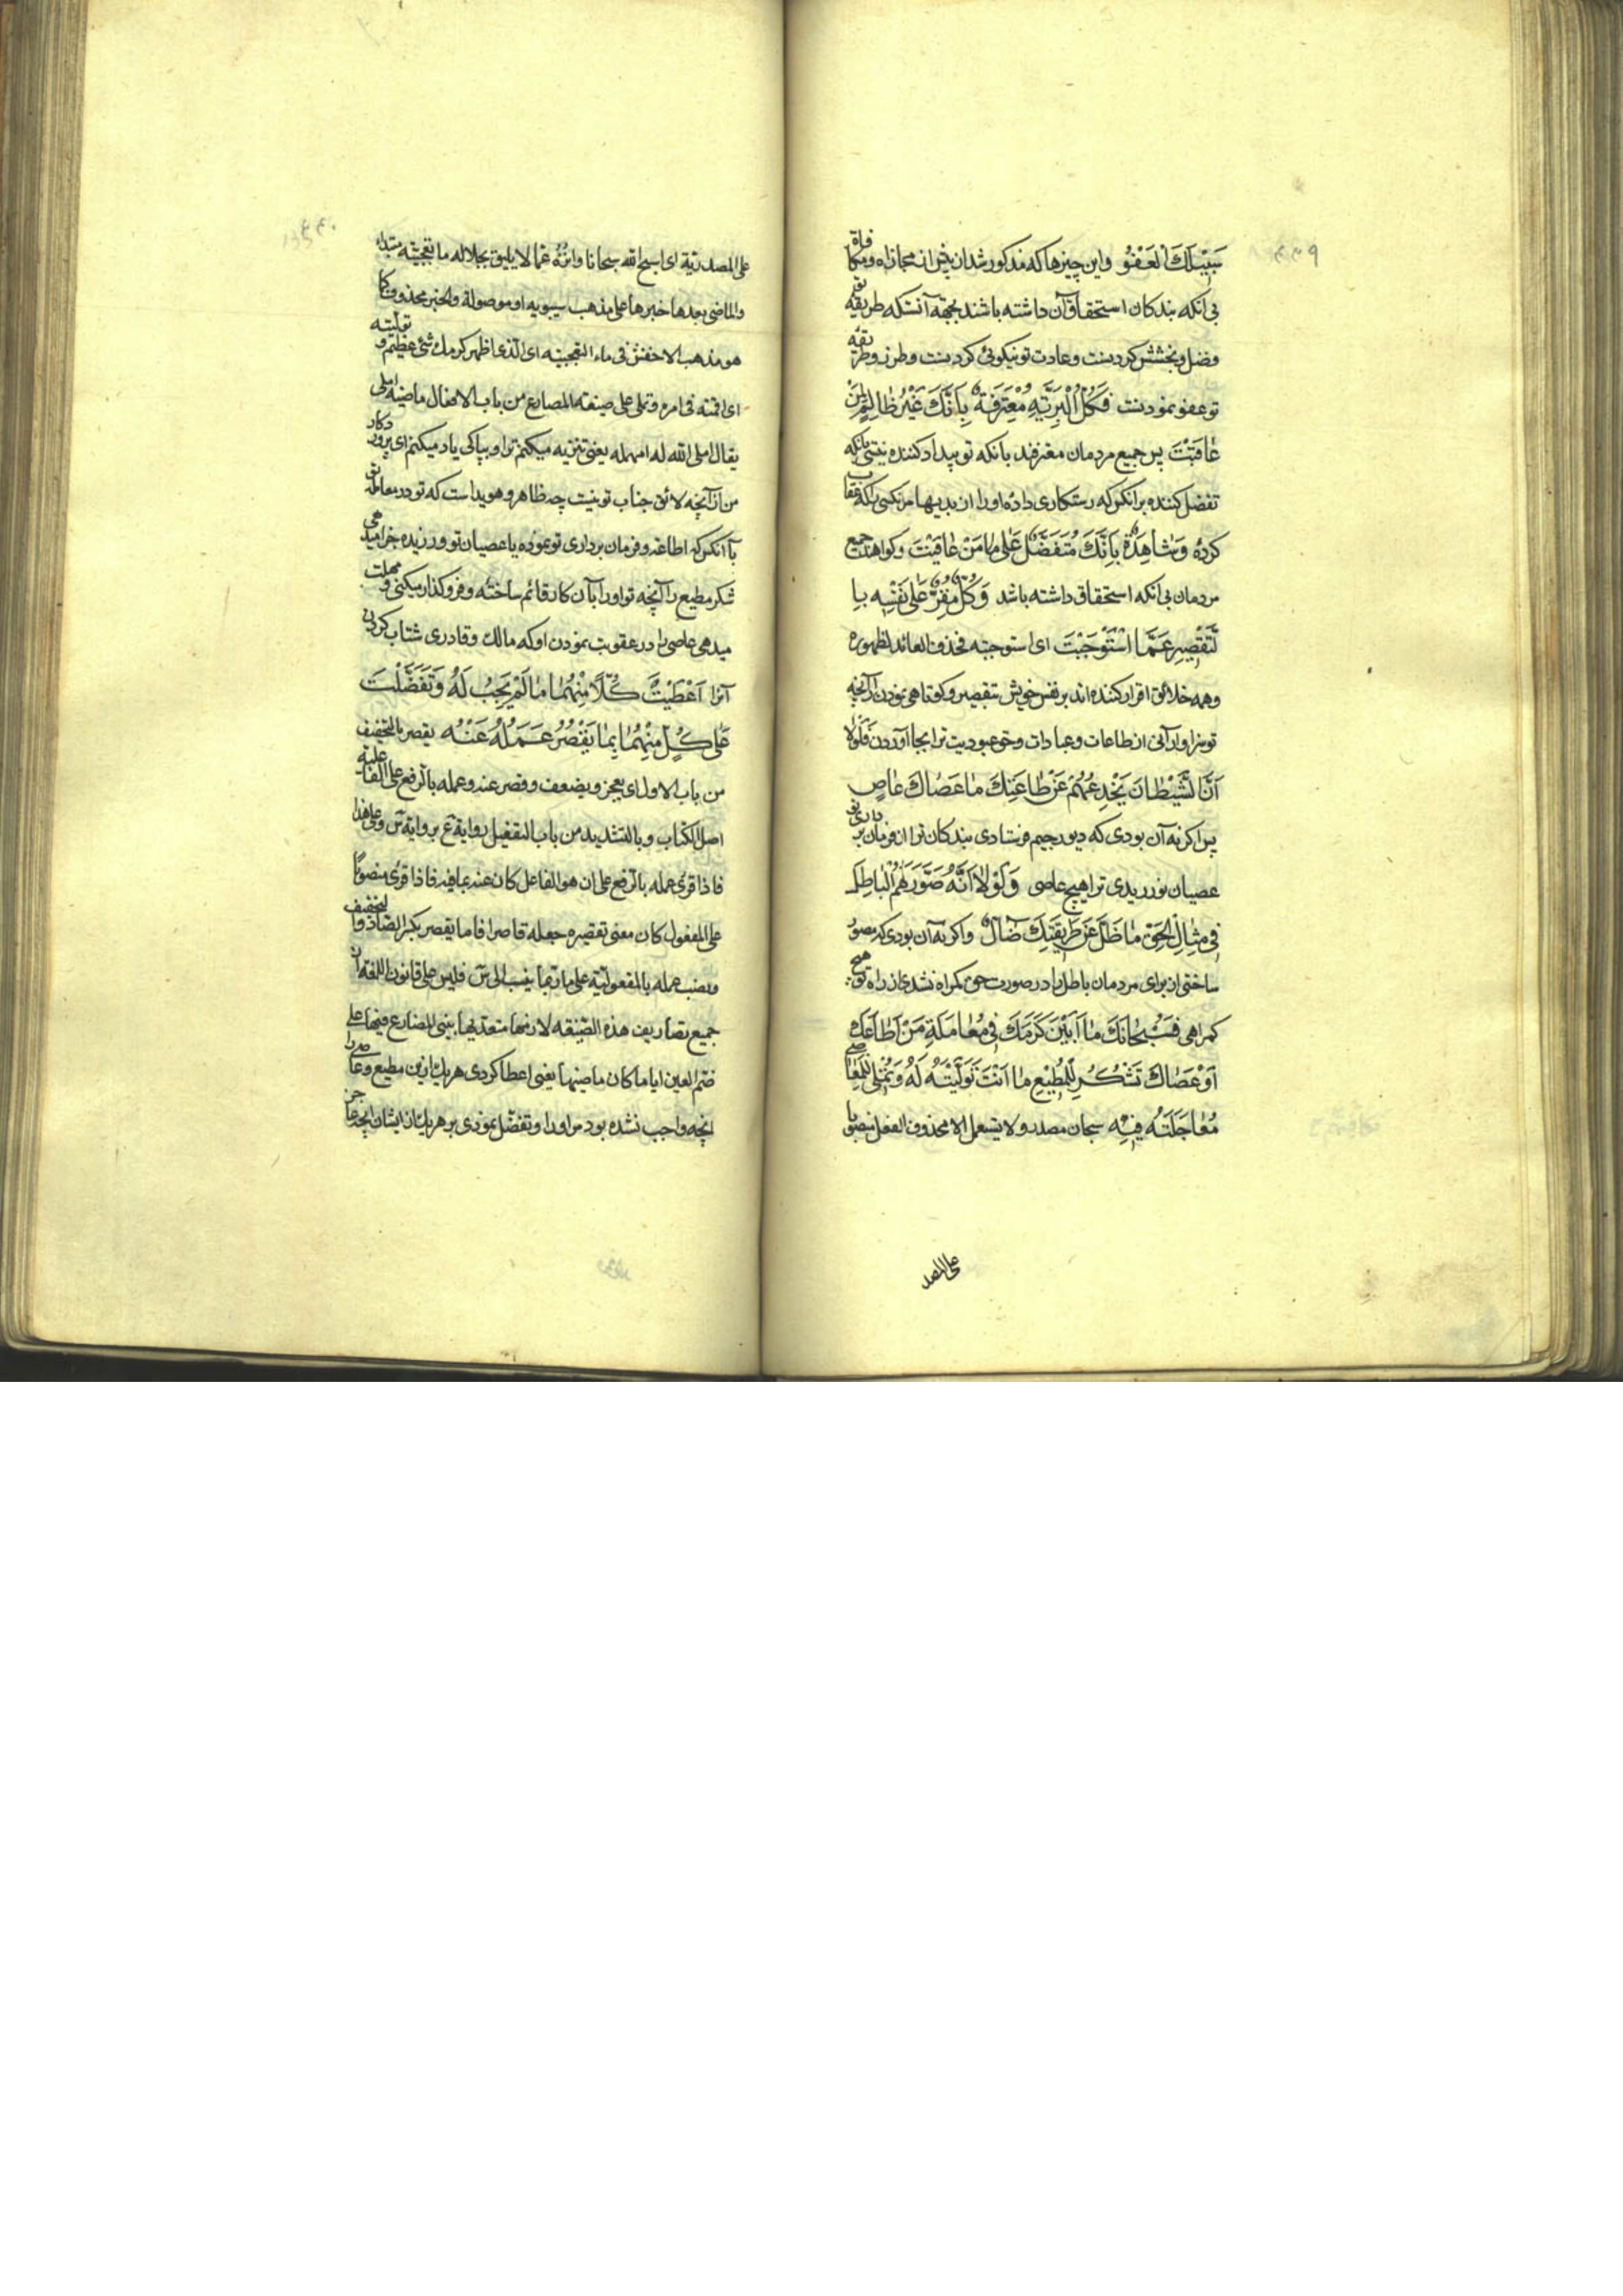 سَبِیلَكَ الْعَفْوُ واین چیزها که مذکور شد ان بخش از مجازاه ومکافاة
بی انکه بندکان استحقاق آن داشته باشند بجهة آنستکه طریقه تو
فضل و بخشش کردنست وعادت تو نیکوئی کردنست وطرز وطریقه
تو عفو نمودنست فَكُلُّ الْبَرِيَّةِ مُعْتَرِفَةٌ بِأَنَّكَ غَيْرُ ظَالِمٍ لِمَنْ
عَاقَبْتَ پس جمیع مردمان معترفند بانکه تو بیداد کننده نیستی بانکه
تفضل کننده بر انکس که رستکاری داده اورا از بدیها مر نکسی راکه عقاب
کردهٔ وَشَاهِدَةٌ بِأَنَّكَ مُتَفَضِّلٌ عَلَى مَنْ عَافَيْتَ وکواهند جمیع
مردمان بی انکه استحقاق داشته باشد وَكُلٌّ مُقِرٌّ عَلَى نَفْسِهِ بِا
لتَّقْصِيرِ عَمَّا اسْتَوْجَبْتَ ای استوجبته فحذف العائد لظهوره
وهمه خلائق اقرار کننده اند بر نفس خویش بتقصیر وکوتاهی نمودن از آنچه
تو سزاوار آنی از طاعات وعبادات وحق عبودیت ترا بجا آوردن فَلَوْلَا
أَنَّ الشَّيْطَانَ يَخْدَعُهُمْ عَنْ طَاعَتِكَ مَا عَصَاكَ عَاصٍ
پس اکر نه آن بودی که دیو رجیم فرستادی بندکان ترا از فرمان برداری تو
عصیان نورزیدی ترا هیچ عاصی وَلَوْلَا أَنَّهُ صَوَّرَ لَهُمُ الْبَاطِلَ
فِي مِثَالِ الْحَقِّ مَا ضَلَّ عَنْ طَرِيقَتِكَ ضَالٌّ واکر نه آن بودی که مصور
ساختی از برای مردمان باطل را در صورت حق کمراه نشدی از راه تو هیچ
کمراهی فَسُبْحَانَكَ مَا أَبْيَنَ كَرَمَكَ فِي مُعَامَلَةِ مَنْ أَطَاعَكَ
أَوْ عَصَاكَ تَشْكُرُ لِلْمُطِيعِ مَا أَنْتَ تَوَلَّيْتَهُ لَهُ وَتُمْلِي لِلْعَاصِي
مُعَاجَلَتَهُ فِيهِ سبحان مصدر ولا یستعمل الا محذوف الفعل منصوبا
على المصد
على المصدریة ای اسبح الله سبحانا وانزّهُ عما لا یلیق بجلاله ما تعجبیّه مبتداء
والماضی بعدها خبرها علی مذهب سیبویه او موصولة والخبر محذوف کما
هو مذهب الاخفش فی ماء التعجبیّه ای الّذی اظهر کرمك شیٔ عظیم و تولّیته
ای اقمته فی امره وتملی علی صیغة المضارع من باب الافعال ماضیه املی
یقال املی الله له امهله یعنی تنزیه میکنم ترا و بپاکی یاد میکنم ای پروردکار
من از آنچه لائق جناب تو نیست چه ظاهر وهویداست که تو در معامله تو
با آنکس که اطاعه وفرمان برداری تو نموده یا عصیان تو ورزیده جزا میدهی
شکر مطیع را آنچه تو اورا بآن کار قائم ساختهٔ وفروکذار میکنی و مهلت
میدهی عاصی را در عقوبت نمودن او که مالك وقادری شتاب کردن
آنرا أَعْطَيْتَ كُلًّا مِنْهُمَا مَا لَمْ يَجِبْ لَهُ وَتَفَضَّلْتَ
عَلَى كُلٍّ مِنْهُمَا بِمَا يَقْصُرُ عَمَلُهُ عَنْهُ یقصر بالتخفیف
من باب الاول ای یعجز ویضعف وقصر عنه وعمله بالرفع علی الفاعلیة
اصل الکتاب وبالتشدید من باب التفعیل روایة ع بروایة س وعلی هذا
فاذا قرئ عمله بالرفع علی ان هو الفاعل کان عنه بمافیه فاذا قرئ منصوبًا
علی المفعول کان معنی تقصیره جعله قاصرا فاما یقصر بکسر الصاد والتخفیف
ونصب عمله بالمفعولیّة علی ما ربما ینسب الی س فلیس علی قانون اللغة ان
جمیع تصاریف هذه الصّیغه لازمها متعدیها یبنی المضارع منها علی
ضم العین ایاما کان ماضیها یعنی اعطا کردی هر یك از این مطیع وعاصی را
انچه واجب نشده بود مر اورا وتفضّل نمودی بر هر یك از ایشان بانچه عاجز